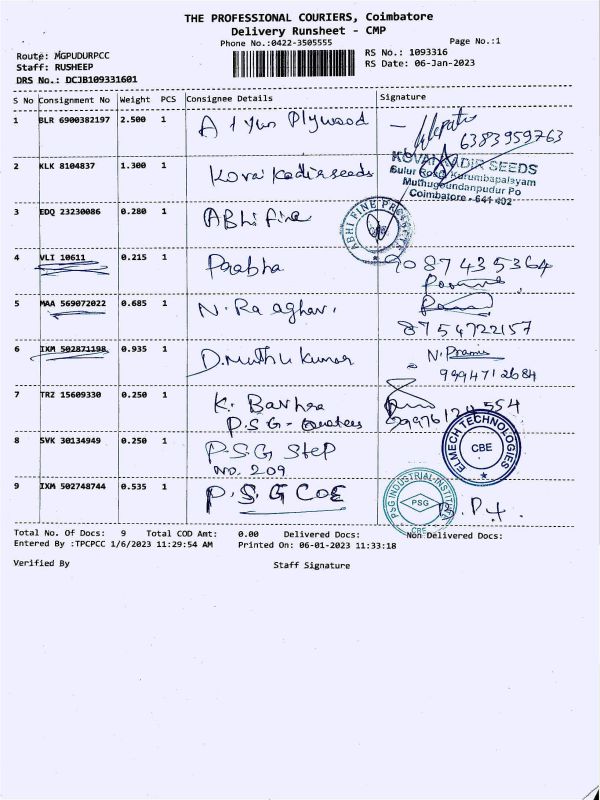 THE PROFESSIONAL COURIERS, Coimbatore
Delivery Runsheet - CMP
Phone No.:0422-3505555
Page No.:1
Route: MGPUDURPCC
Staff: RUSHEEP
DRS No.: DCJB109331601
RS No.: 1093316
RS Date: 06-Jan-2023
S No Consignment No Weight PCS Consignee Details Signature
1 BLR 6900382197 2.500 1 Plywood 6383959763
2 KLK 8104837 1.300 1 Kovai Kadir seeds
KOVAI KADIR SEEDS
Sulur Road, Kurumbapalayam
Muthugoundanpudur Po
Coimbatore - 641 402
3 EDQ 23230086 0.280 1 ABhi fine
ABHI FINE
4 VLI 10611 0.215 1 Prabha 9087435364
5 MAA 569072022 0.685 1 N. Raaghav.
8754722157
6 IXM 502871198 0.935 1 D. Muthu Kumar N.
9994712684
7 TRZ 15609330 0.250 1 K.
P.S.G -
8 SVK 30134949 0.250 1 P.S.G STEP
NO. 209
ELMECH TECHNOLOGIES
CBE
9 IXM 502748744 0.535 1 P.S.G COE
PSG INDUSTRIAL INSTITUTE
PSG
CBE
Total No. Of Docs: 9 Total COD Amt: 0.00 Delivered Docs: Non Delivered Docs:
Entered By :TPCPCC 1/6/2023 11:29:54 AM Printed On: 06-01-2023 11:33:18
Verified By Staff Signature